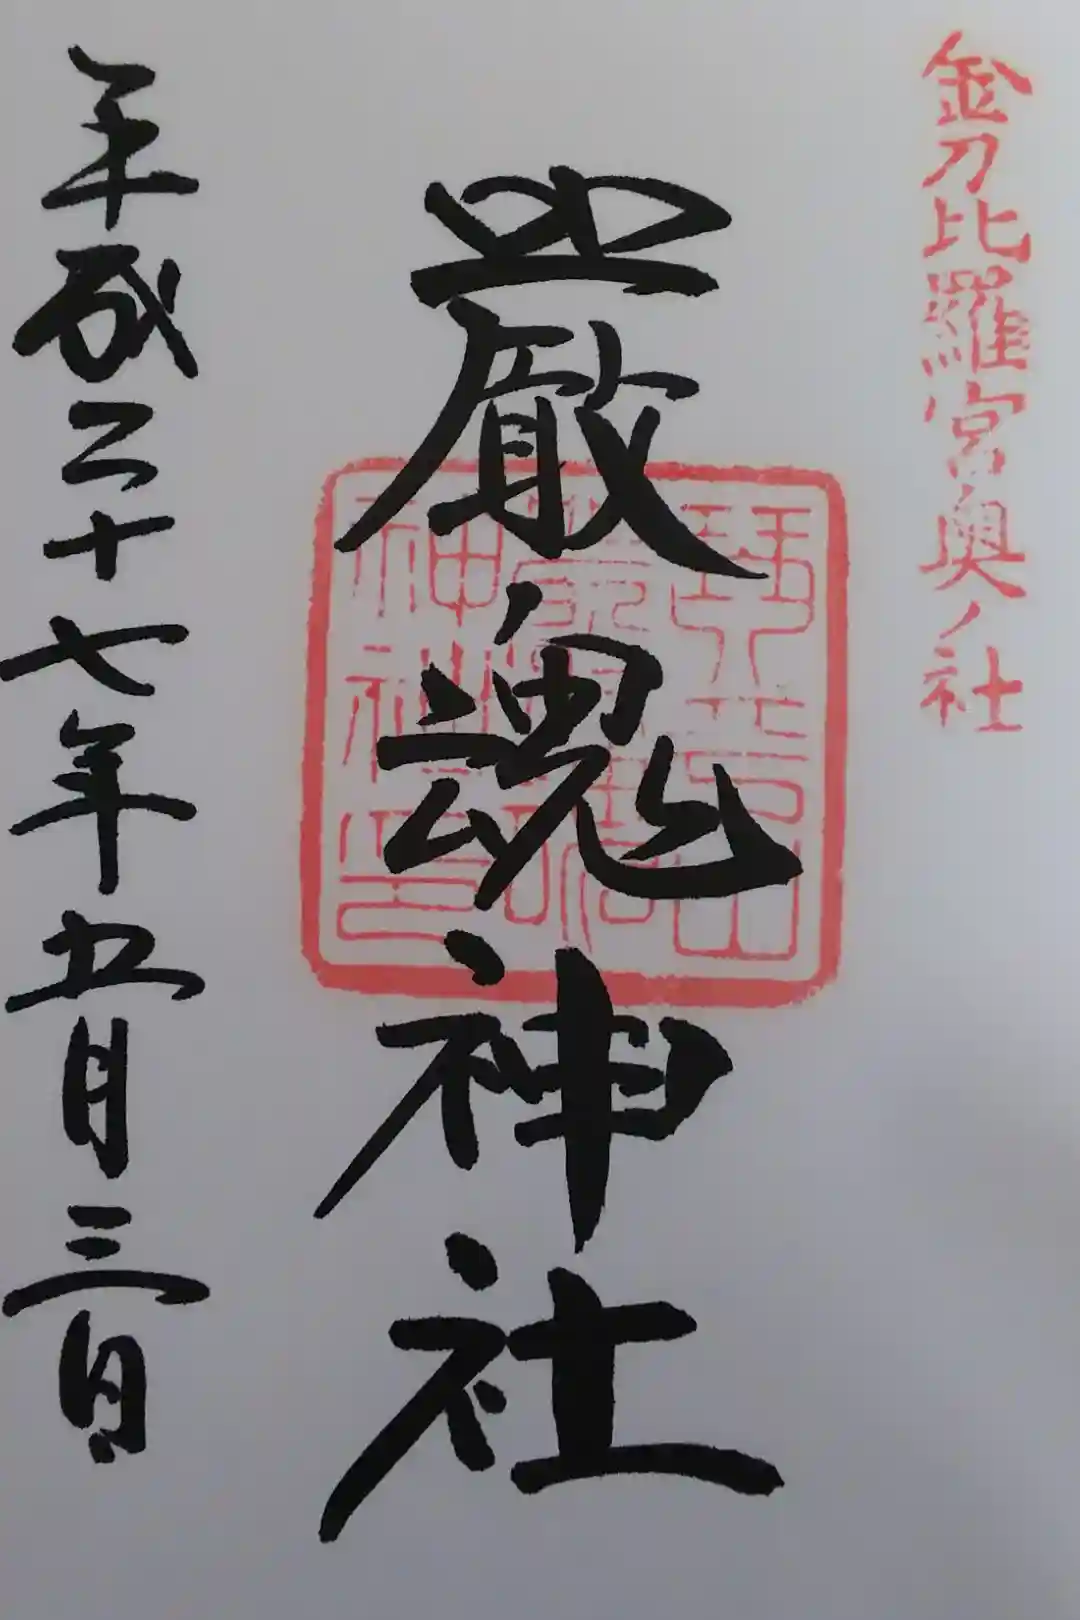 金刀比羅宮奥ノ社
嚴魂神社
平成二十七年五月三日
琴平山
嚴魂神社印